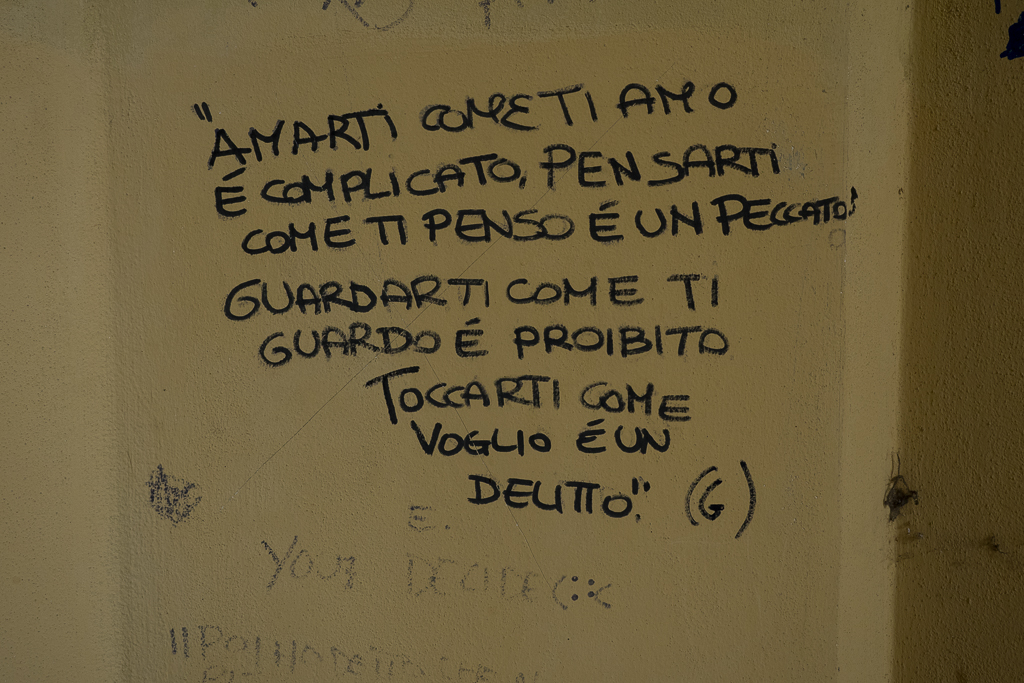 "AMARTI COME TI AMO
É COMPLICATO, PENSARTI
COME TI PENSO É UN PECCATO!
GUARDARTI COME TI
GUARDO É PROIBITO
TOCCARTI COME
VOGLIO É UN
DELITTO." (G)
E.
DECIDE